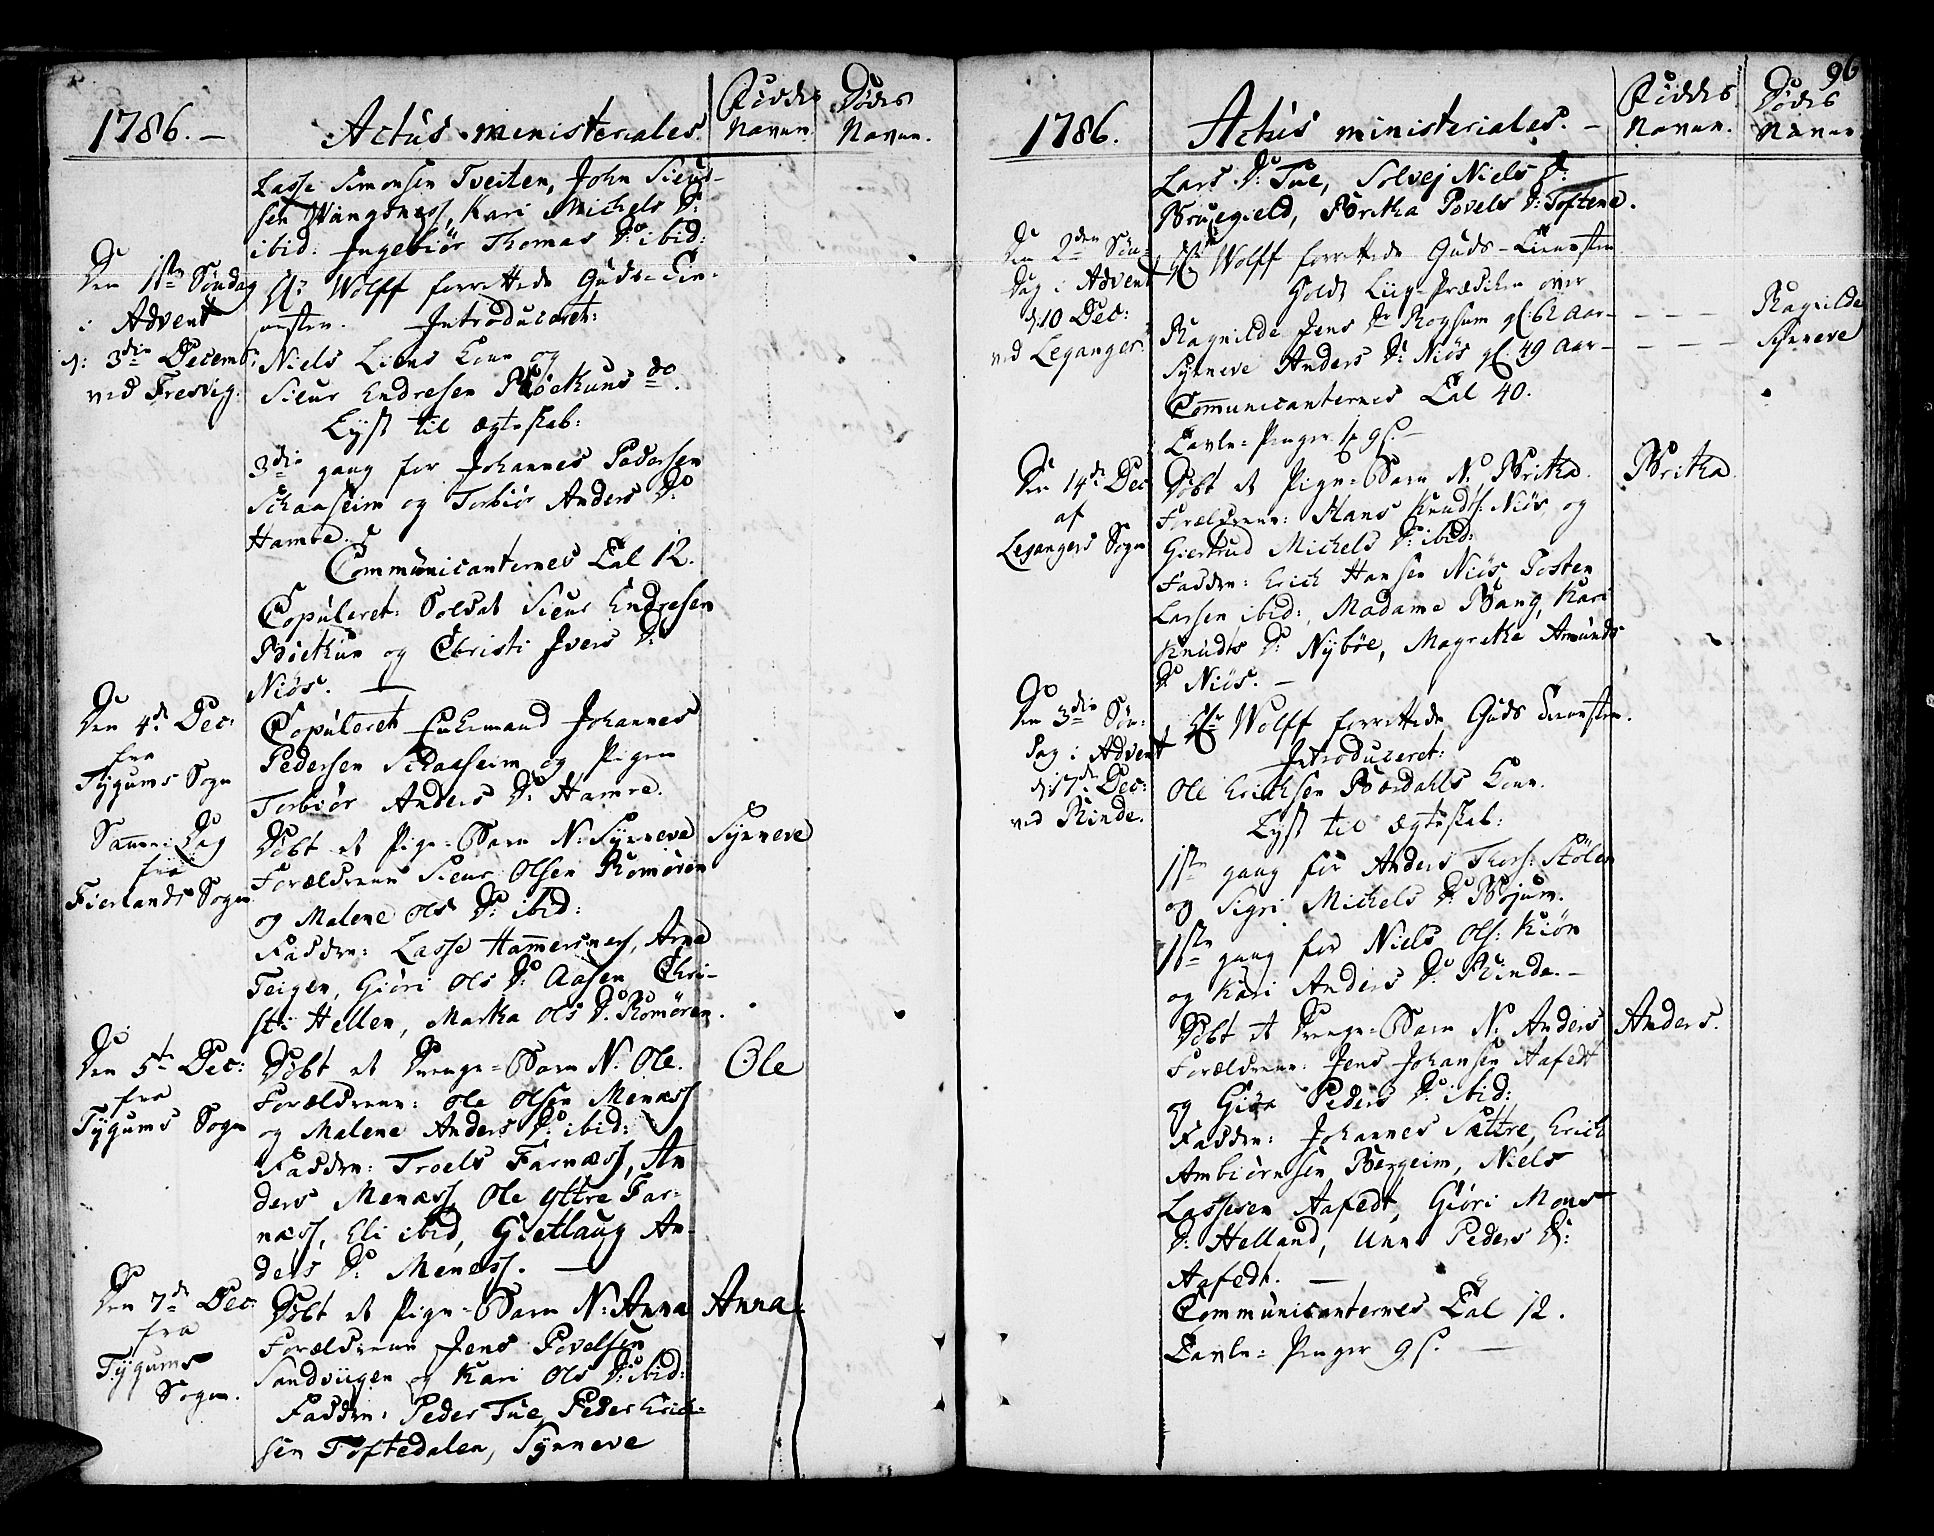 1786. — Actus ministeriales. Fødde Navne. Døde Navne.
Lasse Simonsen Tveiten, John Siur-
sen Wangsness, Kari Michels D:
ibid: Ingebiør Thomas D: ibid:
Den 1ste Søndag
i Advent
d: 3die Decemb:
ved Fresvig:
Hr Wolff forrettede Guds-Tien-
nesten. Introduceret:
Niels Liens Kone og
Siur Endresen Böetuns do.
Lyst til Ægteskab:
3die gang for Johannes Pedersen
Schaaseim og Torbiør Anders D:
Hamre.
Communicanternes Tal 12.
Copuleret: Soldat Siur Endresen
Böetun og Christi Ivers D:
Niøs. —
Den 4de Dec:
fra
Tygums Sogn
Copuleret Enkemand Johannes
Pedersen Schaaseim og Pigen
Torbiør Anders D: Hamre.
Samme Dag
fra
Fierlands Sogn
Døbt et Pige-Barn N: Synneve Synneve
Forældrene Siur Olsen Romøren
og Malene Ols D: ibid:
Faddre: Lasse Hammersness, Arne
Teigen, Giøri Ols D: Aasen, Chri-
sti Hellen, Martha Ols D: Romøren.
Den 5te Dec:
fra
Tygums Sogn
Døbt et Drenge-Barn N: Ole. Ole
Forældrene: Ole Olsen Menæss
og Malene Anders D: ibid:
Faddre: Troels Farnæss, An
ders Menæss, Ole Yttre Far-
næss, Eli ibid, Gietlaug An-
ders D: Menæss. —
Den 7de Dec:
fra
Tygums
Sogn.
Døbt et Pige-Barn N: Anna Anna.
Forældrene Jens Povelsen
Sandviigen og Kari Ols D: ibid:
Faddre: Peder Tue, Peder Erich-
sen Toftedalen, Synneve
96
1786. Actus ministeriales. — Fødde Navne. Døde Navne
Lars D: Tue, Solvej Niels D:
Bruegield, Britha Povels D: Toftene.
Den 2den Søn-
dag i Advent
d: 10 Dec:
ved Leganger:
Hr Wolff forrettede Guds-Tienesten
Holdt Liig-Prædiken over
Ragnilde Jens Dr Rogsum gl: 62 Aar — — — Ragnilde
Synneve Anders D: Niøs gl: 49 Aar — — — Synneve
Communicanternes Tal 40.
Tavle-Penger 1 9 s. —
Den 14de Dec
af
Legangers Sogn
Døbt et Pige-Barn N: Britha. Britha
Forældrene: Hans Knudts: Niøs, og
Giertrud Michels D: ibid:
Faddre: Erich Hansen Niøs, Tosten
Larsen ibid:, Madame Bang, Kari
Knudts D: Nybøe, Magretha Amunds
D: Niøs. —
Den 3die Søn-
dag i Advent
d: 17de Dec:
ved Rinde.
Hr Wolff forrettede Guds Tienesten.
Introduceret:
Ole Erichsen Bærdahls Kone.
Lyst til Ægteskab:
1ste gang for Anders Thors: Stølen
og Sigri Michels D: Bøjum.
1ste gang for Niels Ols: Kiøn
og Kari Anders D: Rinde. —
Døbt et Drenge-Barn N: Anders Anders.
Forældrene: Jens Johansen Aafedt
og Giøa Peders D: ibid:
Faddre: Johannes Sættre, Erich
Ambiørnsen Bergeim, Niels
Lassesen Aafedt, Giøri Mons
D: Helland, Unne Peders D:
Aafedt. —
Communicanternes Tal 12.
Tavle-Penger 9 s. —